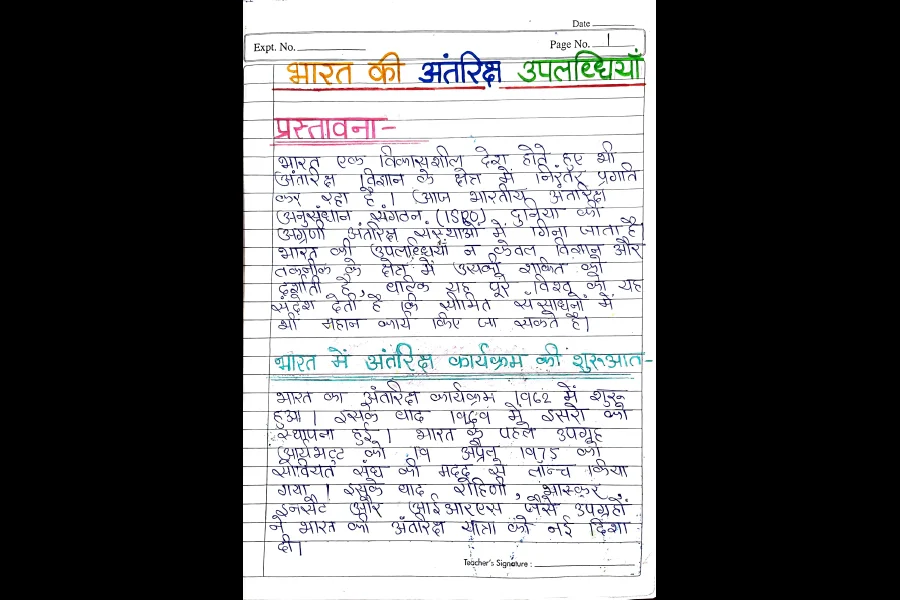 Date
Expt. No.
Page No. 1
भारत की अंतरिक्ष उपलब्धियाँ
प्रस्तावना-
भारत एक विकासशील देश होते हुए भी
अंतरिक्ष विज्ञान के क्षेत्र में निरंतर प्रगति
कर रहा है। आज भारतीय अंतरिक्ष
अनुसंधान संगठन (ISRO) दुनिया की
अग्रणी अंतरिक्ष संस्थाओं में गिना जाता है।
भारत की उपलब्धियाँ न केवल विज्ञान और
तकनीक के क्षेत्र में उसकी शक्ति को
दर्शाती है, बल्कि यह पूरे विश्व को यह
संदेश देती है कि सीमित संसाधनों में
भी महान कार्य किए जा सकते है।
भारत में अंतरिक्ष कार्यक्रम की शुरुआत-
भारत का अंतरिक्ष कार्यक्रम १९६२ में शुरू
हुआ। इसके बाद १९६९ में इसरो की
स्थापना हुई। भारत के पहले उपग्रह
आर्यभट्ट को १९ अप्रैल १९75 को
सोवियत संघ की मदद से लॉन्च किया
गया। इसके बाद रोहिणी, भास्कर,
इनसैट और आईआरएस जैसे उपग्रहों
ने भारत की अंतरिक्ष यात्रा को नई दिशा
दी।
Teacher's Signature :